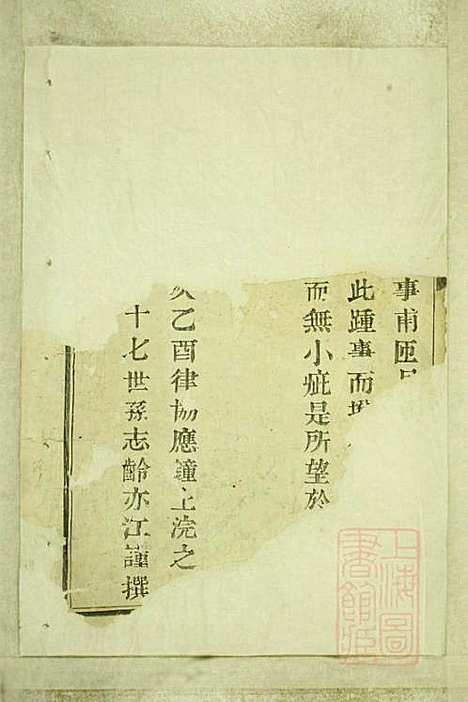 事甫匝月
此踵事而增
而無小疵是所望於
乙酉律協應鐘上浣之
十七世孫志齡亦江謹撰
上海圖
書館藏